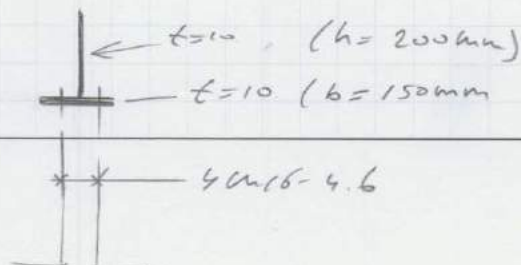 t=10 (h= 200mm)
t=10 (b= 150mm
4 M16- 4.6